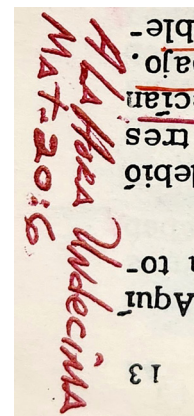 A LA Hora Undecima
MAT-20:6
13
Aquí
to-
debió
tres
cian
bajo.
ble-